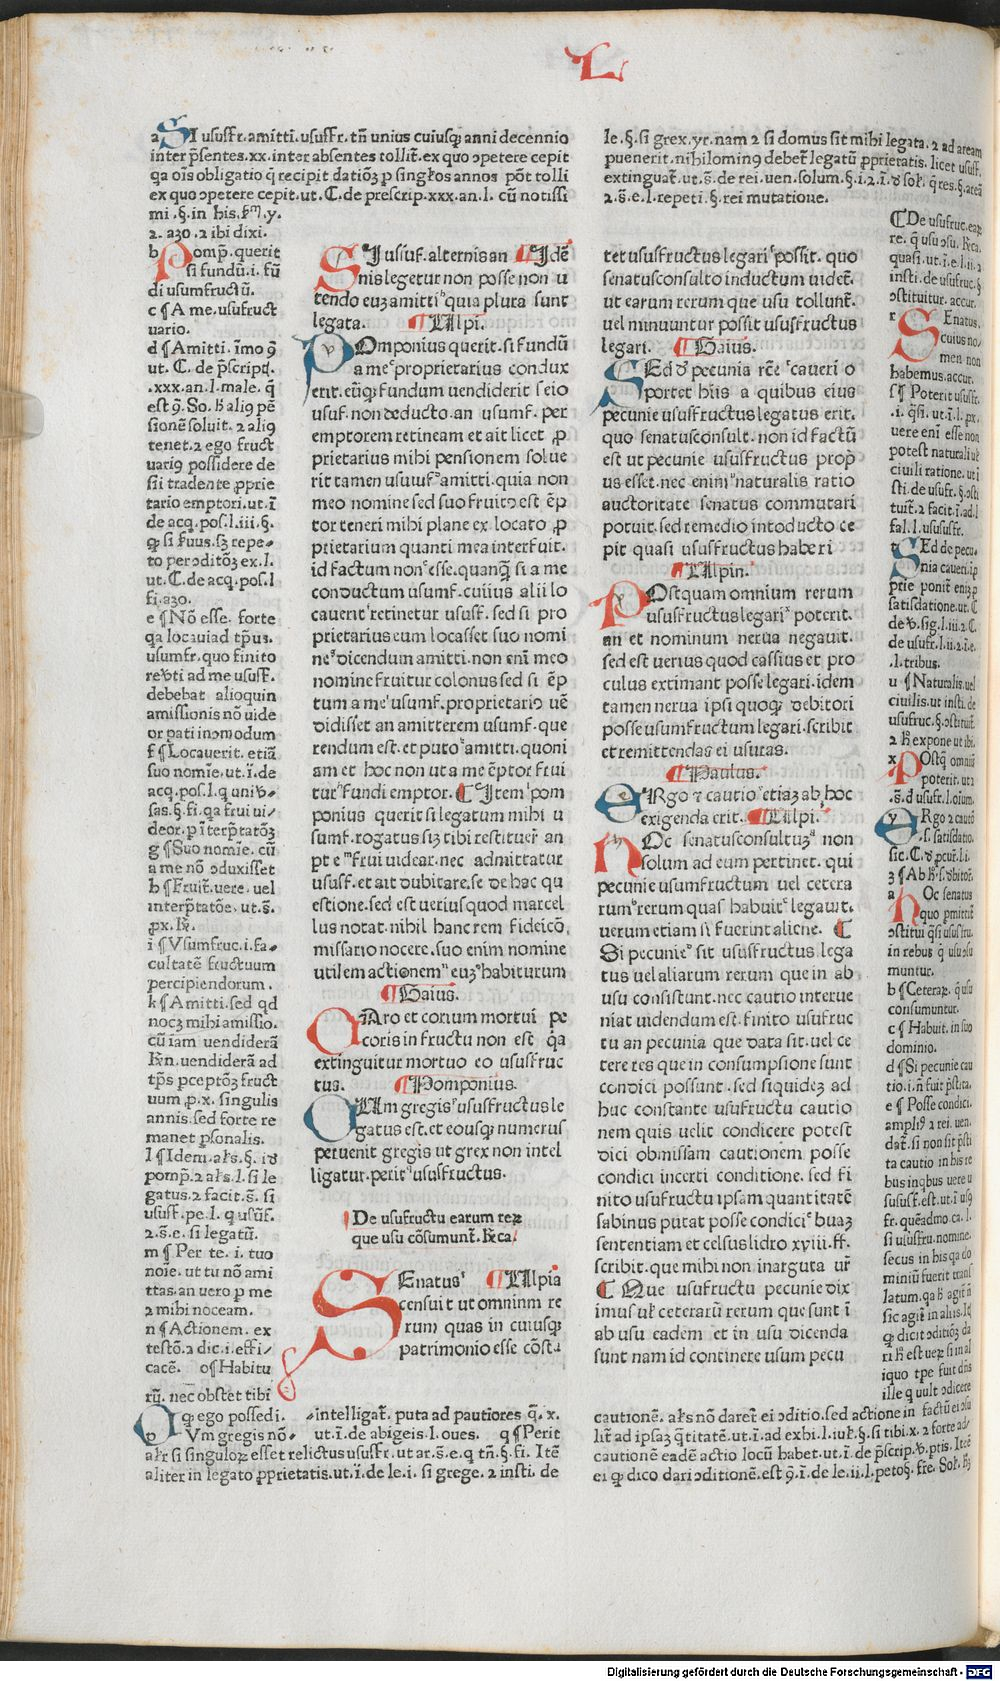 L
a SI ususfr̄. amitti. ususfr̄. tn̄ unius cuiusqꝫ anni decennio
inter p̄sentes. xx. inter absentes tollit̄. ex quo ↄpetere cepit
qa oīs obligatio q̄ recipit datiōꝫ p singłos annos pōt tolli
ex quo ↄpetere cepit. ut. C. de prescrip. xxx. an. l. cū notissi
mi. §. in his.
2. azo. 2 ibi dixi.
b Pomp̄. querit
si fundū. i. fū
di usumfructū.
c ¶ A me. usufruct
uario.
d ¶ Amitti. īmo 9
ut. C. de p̄script̄.
.xxx. an. l. male. q̄
est 9. So. aliq pē
sionē soluit. 2 aliq
tenet. 2 ego fruct
uariq possidere de
sii tradente ꝓprie
tario emptori. ut. ī
de acq. pos. l. iii. §.
ꝙ si seruus. sꝫ repe-
to per ↄditōꝫ ex. l.
ut. C. de acq. pos. l
fi. azo.
e ¶ Nō esse. forte
qa locauiad tp̄us.
usumfr̄. quo finito
reuti ad me ususf̄.
debebat alioquin
amissionis nō uide
or pati inↄmodum
f ¶ Locauerit. etiā
suo nomīe. ut. ī. de
acq. pos. l. q uniu-
sas. §. fi. qa frui ui-
deor. p īterp̄tatōꝫ
g ¶ Suo nomīe. cū
a me nō ↄduxisset
h ¶ Fruit̄. uere. uel
interp̄tatōe. ut. s̄.
i ¶ Usumfruc. i. fa-
cultatē fructuum
percipiendorum.
k ¶ Amitti. sed qd
nocꝫ mihi amissio.
cū iam uendiderā
Rn̄. uendiderā ad
tp̄s p̄ceptōꝫ fruct
uum .p. x. singulis
annis. sed forte re
manet p̄sonalis.
l ¶ Idem. ałs. §. id
pomp̄. 2 ałs. l. si le
gatus. 2 facit. s̄. si
ususf̄. pe. l. q usūf̄.
2. s̄. e. si legatū.
m ¶ Per te. i. tuo
noīe. ut tu nō ami
ttas. an uero p me
2 mihi noceam.
n ¶ Actionem. ex
testō. 2 dic. i. effi-
cacē. o ¶ Habitu
rū. nec obstet tibi
ꝙ ego possedi.
p QVm gregis nō-
SI ususf. alternis an ¶ Idē
nis legetur non posse non u
tendo euꝫ amitti quia plura sunt
legata. ¶ Ulpi.
POmponius querit. si fundū
a me proprietarius condux
erit. eūqꝫ fundum uendiderit seio
usuf. non deducto. an usumf. per
emptorem retineam et ait licet ꝓ
prietarius mihi pensionem solue
rit tamen usuuf amitti. quia non
meo nomine sed suo fruitↄ est ēp
tor teneri mihi plane ex locato ꝓ
prietarium quanti mea interfuit.
id factum non esse. quanqꝫ si a me
conductum usumf. cuiius alii lo
cauerit retinetur ususf. sed si pro
prietarius eum locasset suo nomi
ne dicendum amitti. non enī meo
nomine fruitur colonus sed si ēp
tum a me usumf. proprietario uē
didisset an amitterem usumf. que
rendum est. et puto amitti. quoni
am et hoc non ut a me ēptor frui
tur fundi emptor. ¶ Item pom
ponius querit si legatum mihi u
sumf. rogatus siꝫ tibi restituer̄ an
pt e frui uidear. nec admittatur
ususf. et ait dubitare. se de hac qu
estione. sed est uerius quod marcel
lus notat. nihil hanc rem fideicō.
missario nocere. suo enim nomine
utilem actionem euꝫ habiturum
¶ Gaius.
CAro et corium mortui pe
coris in fructu non est qa
extinguitur mortuo eo ususfruc
tus. ¶ Pomponius.
QUm gregis ususfructus le
gatus est. et eousqꝫ numerus
peruenit gregis ut grex non intel
ligatur. perit ususfructus.
¶ De usufructu earum reꝝ
que usu cōsumunt̄.
SEnatus ¶ Ulpia
censuit ut omninm re
rum quas in cuiusqꝫ
patrimonio esse cōst.
-intelligat̄. puta ad pautiores q̄. x.
ut. ī. de abigeis. l. oues. q ¶ Perit
ałr si singuloꝝ esset relictus ususfr̄. ut ar. s̄. e. q tn̄. §. fi. Itē
aliter in legato ꝓprietatis. ut. ī. de le. i. si grege. 2 insti. de
le. §. si grex. yr. nam 2 si domus sit mihi legata. 2 ad aream
puenerit. nihilominꝰ debet̄ legatū ꝓprietatis. licet ususf̄.
extinguat̄. ut. s̄. de rei. uen. solum. §. i. 2. ī. q̄ res. §. aream
2. s̄. e. l. repeti. §. rei mutatione.
tet ususfructus legari possit. quo
senatusconsulto inductum uidet̄.
ut earum rerum que usu tollunt̄.
uel minuuntur possit ususfructus
legari. ¶ Gaius.
SEd d pecunia rc̄e caueri o
portet hiis a quibus eius
pecunie ususfructus legatus erit.
quo senatusconsult. non id factū
est ut pecunie ususfructus prop̄
us esset. nec enim naturalis ratio
auctoritate senatus commutari
potuit. sed remedio intoducto ce
pit quasi ususfructus haberi
¶ Ulpin.
POstquam omnium rerum
ususfructus legari poterit.
an et nominum nerua negauit.
sed est uerius quod cassius et pro
culus extimant posse legari. idem
tamen nerua ipsi quoqꝫ debitori
posse usumfructum legari. scribit
et remittendas ei usuras.
¶ Paulus.
ERgo 2 cautio etiaꝫ ab hoc
exigenda erit. ¶ Ulpi.
HOc senatusconsultuꝫ non
solum ad eum pertinet. qui
pecunie usumfructum uel cetera
rum rerum quas habuit legauit.
uerum etiam si fuerint aliene. ¶
Si pecunie sit ususfructus lega
tus uel aliarum rerum que in ab
usu consistunt. nec cautio interue
niat uidendum est. finito usufruc
tu an pecunia que data sit. uel ce
tere res que in consumpsione sunt
condici possunt. sed siquidēꝫ ad
huc constante usufructu cautio
nem quis uelit condicere potest
dici obmissam cautionem posse
condici incerti conditione. sed fi
nito usufructu ipsam quantitatē
sabinus putat posse condici huaꝫ
sententiam et celsus lidro xviii. ff.
scribit. que mihi non inarguta ur̄
¶ Que usufructu pecunie dix
imus ceterarū rerum que sunt ī
ab usu eadem et in usu dicenda
sunt nam id continere usum pecu
¶ De usufruc. eaꝝ
re. q̄ usu ↄsu.
quasi. ut. ī. e. l. ii. 2
insti. de usufruc. §
ↄstituitur. accur.
r SEnatus.
cuius no-
men non
habemus. accur.
s ¶ Poterit ususfr̄.
.i. q̄si. ut. ī. l. px.
uere enī esse non
potest naturali ul
ciuili ratione. ut i
sti. de usufr. §. ↄsti
tuit̄. 2 facit. ī. ad. l
fal. l. i. ususfr̄.
t SEd de pecu-
nia caueri. ip
prie ponit̄ enīꝫ p
satisdatione. ut. C
de v. sig. l. iii. 2. C.
de usufr. l. ii. 2. ī. e.
.l. tribus.
u ¶ Naturalis. uel
ciuilis. ut insti. de
usufruc. §. ↄstituit̄.
2 expone ut ibi.
x POstq̄ omniū
poterit. ut 2
.s̄. d usufr. l. oīum.
y ERgo 2 cautō
.s. satisdatio.
z ¶ Ab
a HOc senatus
quo pmittit̄
ↄstitui q̄si ususfru.
in rebus q̄ usu ↄsu
muntur.
b ¶ Ceteraꝝ. q̄ usu
consumuntur.
c ¶ Habuit. in suo
dominio.
d ¶ Si pecunie cau
tio. i. n̄ fuit p̄stita.
e ¶ Posse condici.
ampli9 2 rei. uen.
dat̄. si non sit p̄sti
ta cautio in his re
bus inqbus uere u
sususf̄. est. ut. ī usq
fr. quēadmo. ca. l.
si ususfru. nomine.
secus in his qa do
miniū fuerit transl
latum. qa agit̄ n̄
sic agit̄ in aliis. Itē
ꝙ dicit ↄditiōꝫ da
ri est uerꝫ si in al
iquo tpe fuit dn̄s
ille q uult ↄdicere
cautionē. ałs nō daret̄ ei ↄditio. sed actione in factū ei ↄsu
lit̄ ad ipsaꝫ q̄titatē. ut. ī. ad exhi. l. iul. §. si tibi. x. 2 forte ad
cautionē eadē actio locū habet. ut. ī. de p̄scrip. v. ptis. Itē
ei ꝙ dico dari ↄditionē. est 9. ī. de le. ii. l. peto §. fr̄e. Sol.
Digitalisierung gefördert durch die Deutsche Forschungsgemeinschaft - DFG